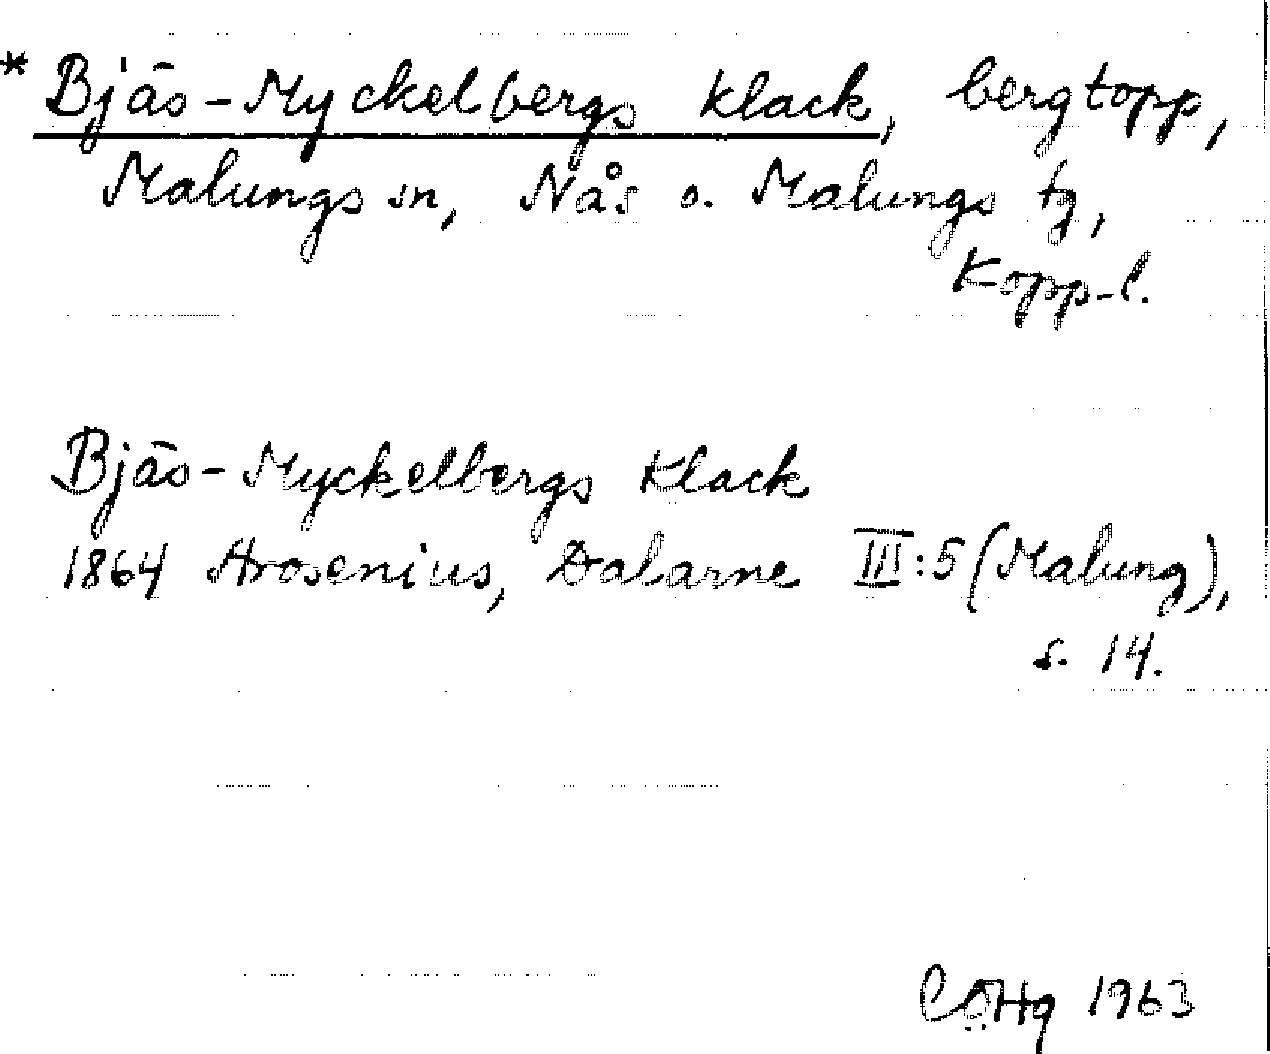 * Bjäs-Myckelbergs Klack, bergtopp,
Malungs sn, Nås o. Malungs tg,
Kopp-l.
Bjäs-Myckelbergs Klack
1864 Arosenius, Dalarne III:5 (Malung),
s. 14.
1963